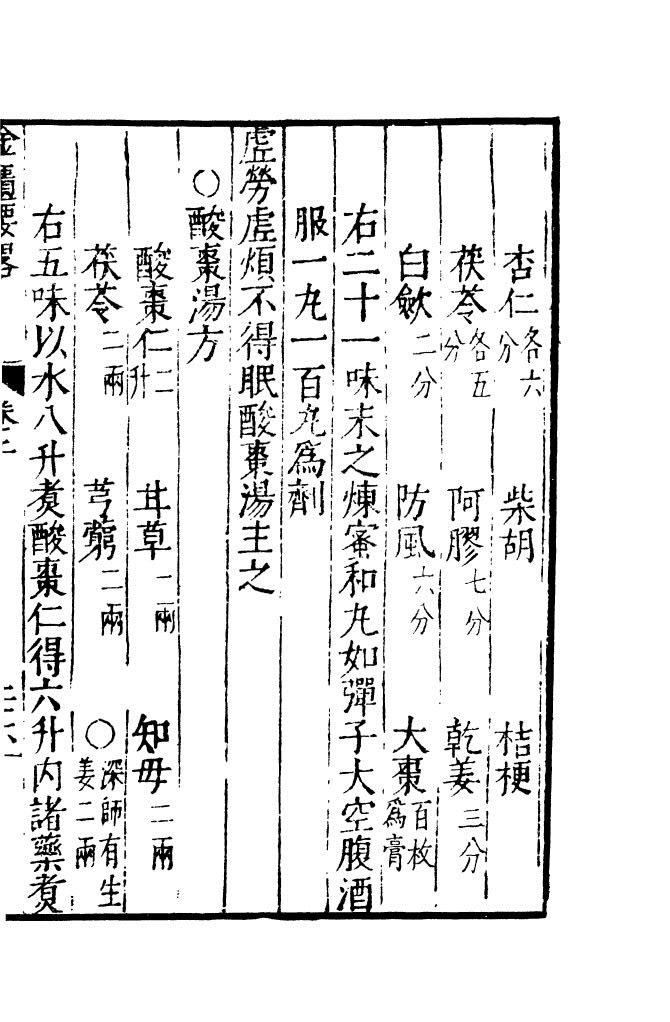 杏仁各六分 柴胡 桔梗
茯苓各五分 阿膠七分 乾姜三分
白斂二分 防風六分 大棗百枚爲膏
右二十一味末之煉蜜和丸如彈子大空腹酒
服一丸一百丸爲劑
虛勞虛煩不得眠酸棗湯主之
○酸棗湯方
酸棗仁二升 甘草一兩 知母二兩
茯苓二兩 芎藭二兩 ○深師有生姜二兩
右五味以水八升煮酸棗仁得六升內諸藥煮
金匱要畧 卷上